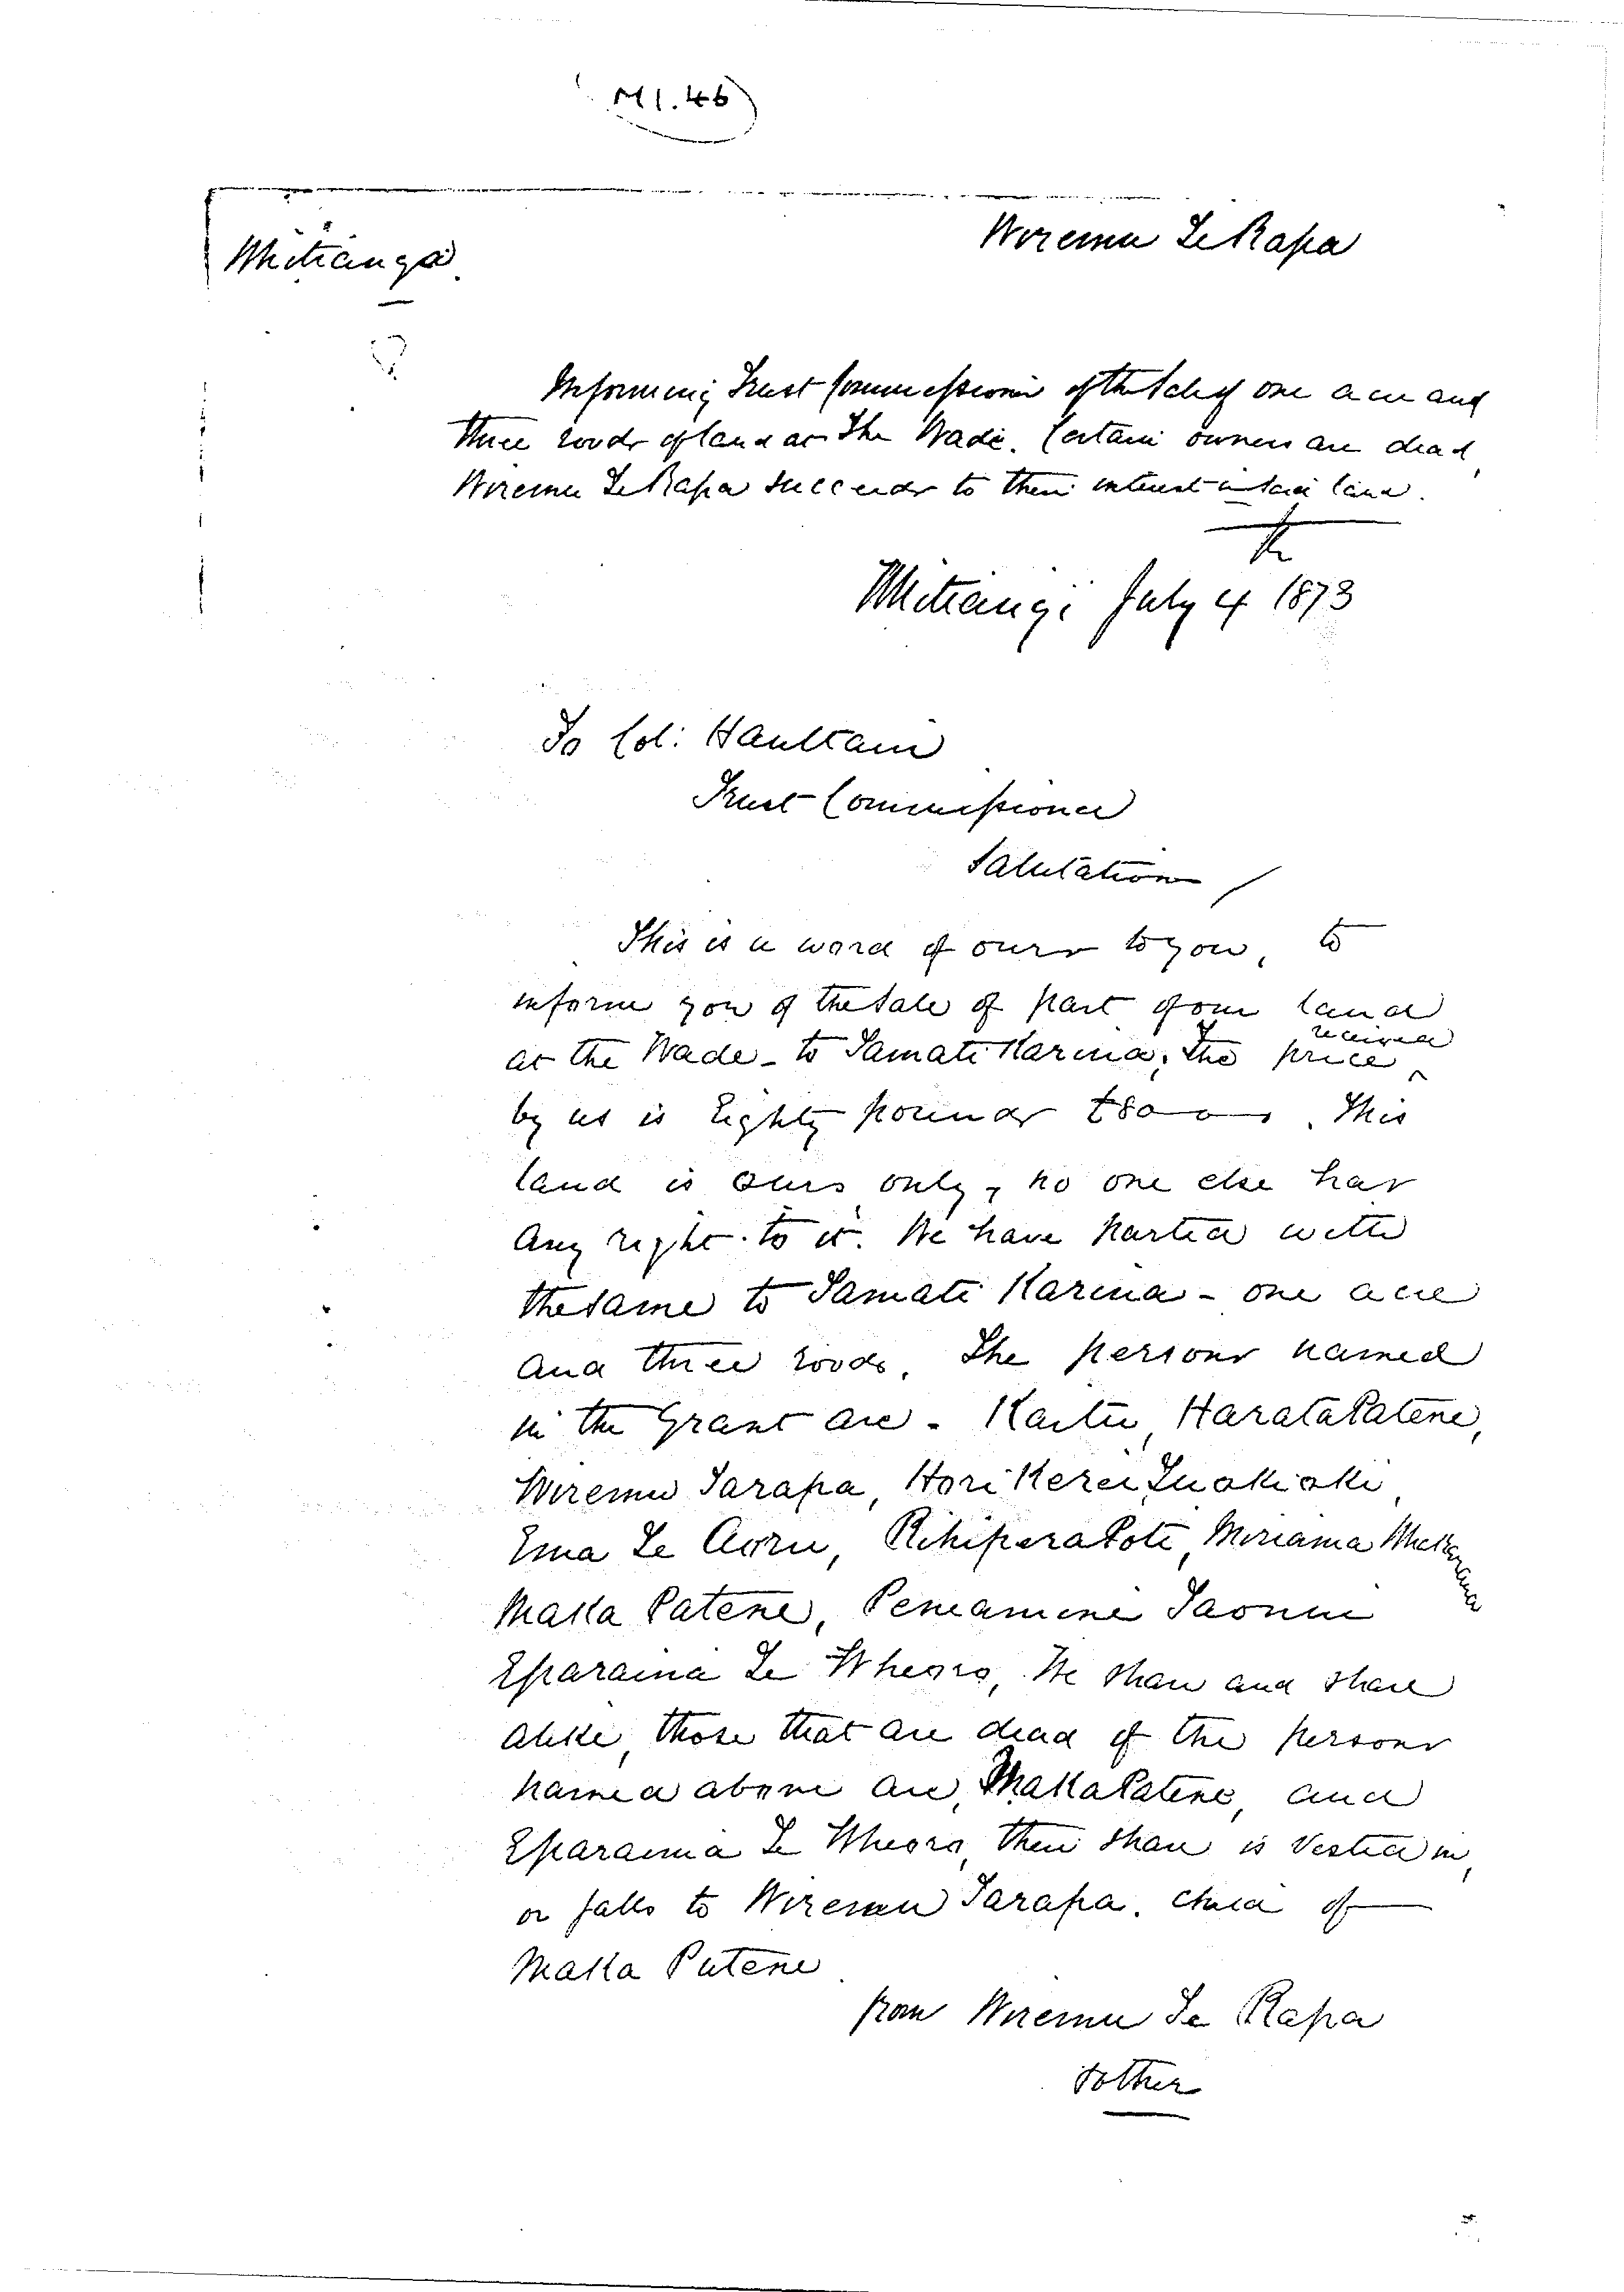 M1.46
Whitianga
Wiremu Te Rapa
Informing Trust Commissioner of the Sale of one acre and
three roods of land at The Wade. Certain owners are dead,
Wiremu Te Rapa succeeds to their interest in said land.
July 4 1873
To Col: Haultain
Trust Commissioner
Salutation
This is a word of ours to you, to
inform you of the sale of part of our land
at the Wade - to Tamati Karina, the price received
by us is Eighty pounds £80 - 0 - . This
land is ours only, no one else has
any right to it. We have parted with
the same to Tamati Karina - one acre
and three roods. The persons named
in the Grant are - Kaitu, Harata Patene,
Wiremu Tarapa, Hori Kerei Tuokioki,
Ema Te Aoru, Rihipera Pote, Miriama
Maka Patene, Peneamine
Eparaima Te Wheoro, We share and share
alike, those that are dead of the persons
named above are, Maka Patene, and
Eparaima Te Wheoro, their share is vested in,
or falls to Wiremu Tarapa. child of
Maka Patene
from Wiremu Te Rapa
& other